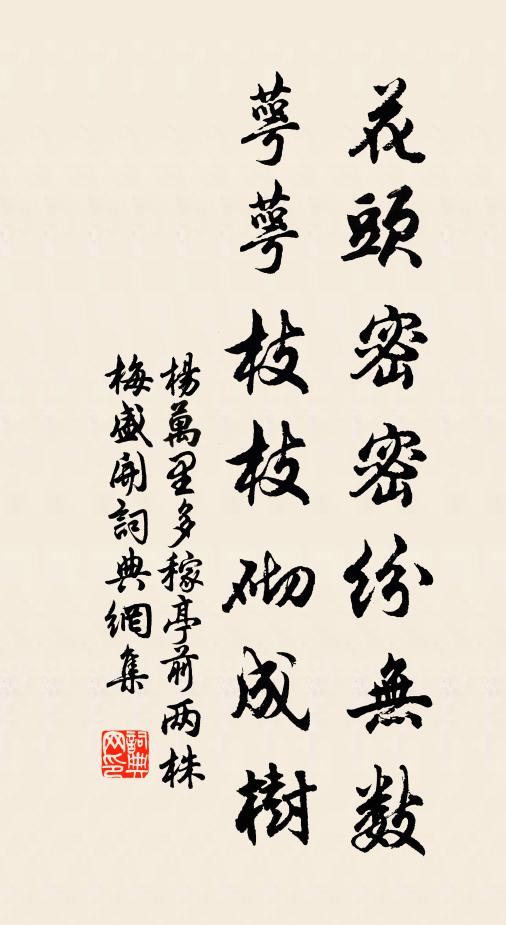 花頭密密紛無數
萼萼枝枝砌成樹
楊萬里多稼亭前两株
梅盛開詞典網集
詞典
网印